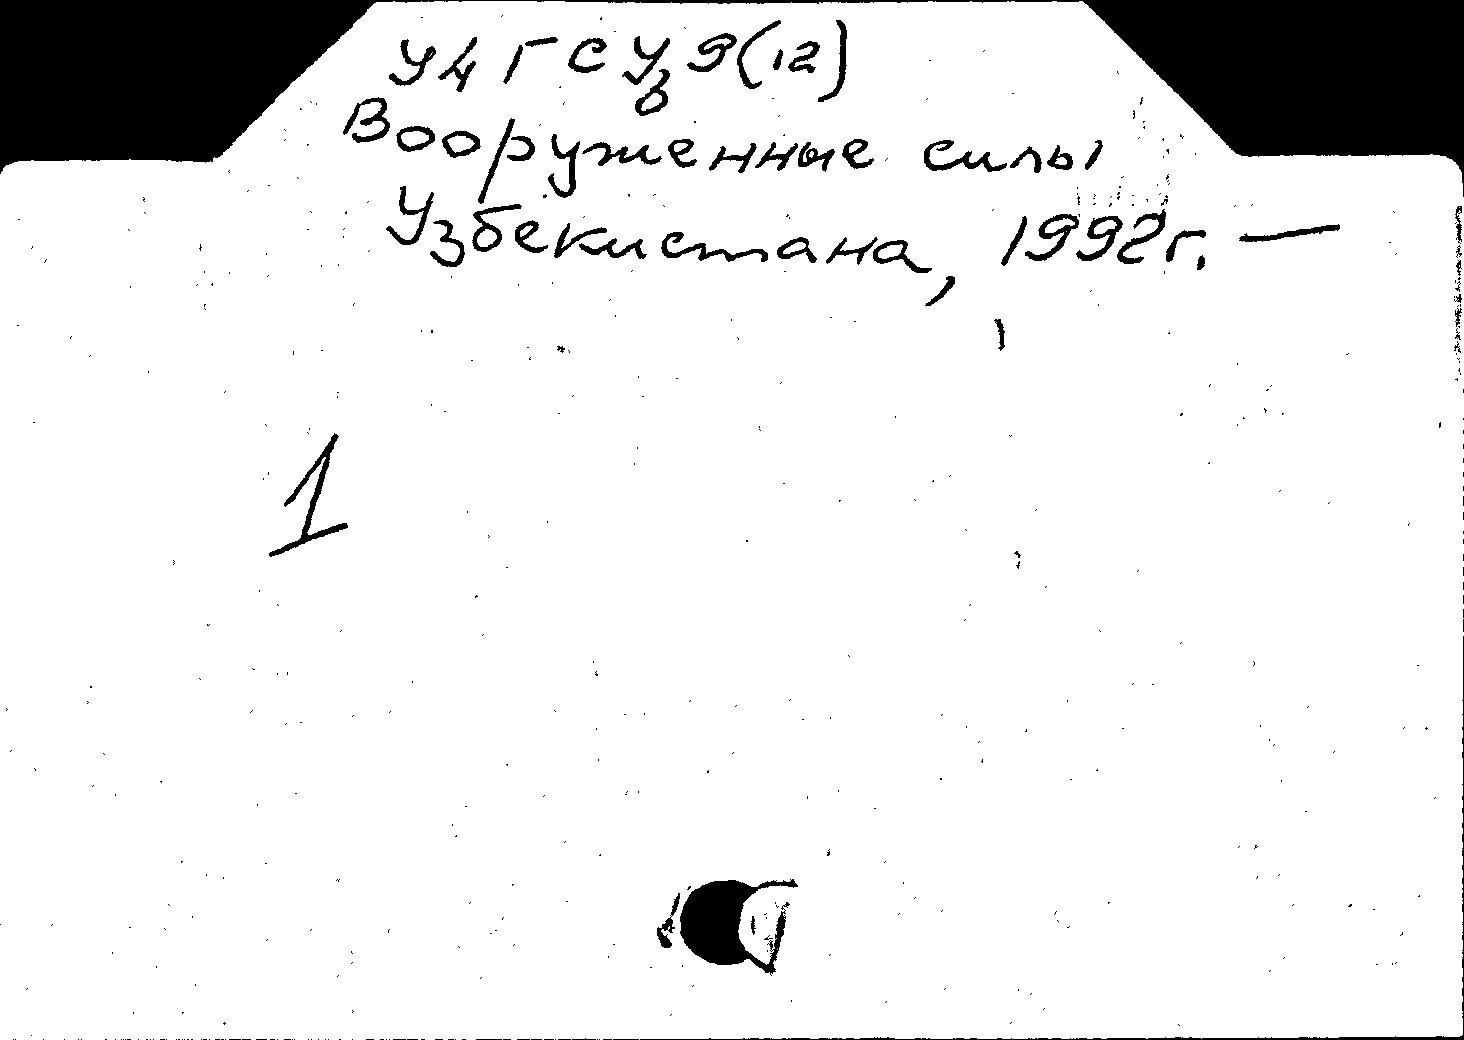 У4ГСУ39(12)
Вооруженные силы
Узбекистана, 1992г. —
1